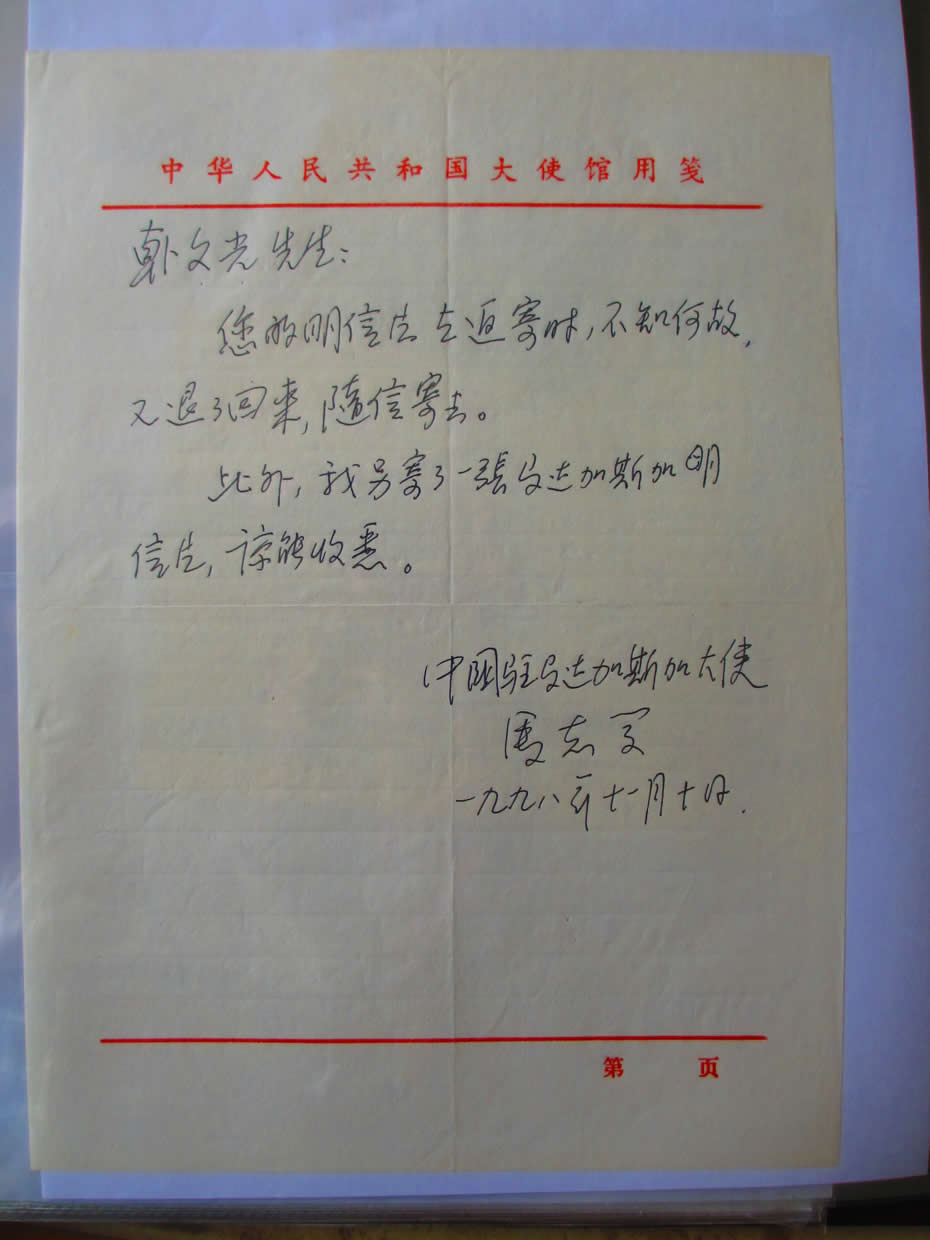 中华人民共和国大使馆用笺
韩文光先生：
您的明信片在返寄时，不知何故，
又退了回来，随信寄去。
此外，我另寄了一張马达加斯加明
信片，谅能收悉。
中国驻马达加斯加大使
志
一九九八年十一月十日.
第 页